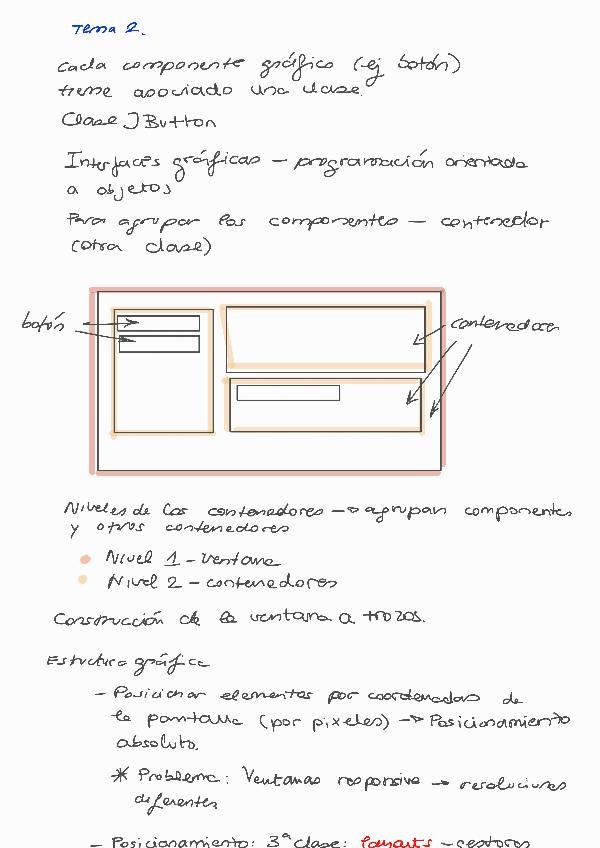 Tema 2.
Cada componente gráfico (ej botón)
tiene asociado una clase.
Clase JButton
Interfaces gráficas – programación orientada
a objetos
Para agrupar los componentes – contenedor
(otra clase)
botón
contenedores
Niveles de los contenedores → agrupan componentes
y otros contenedores
Nivel 1 – ventana
Nivel 2 – contenedores
Construcción de la ventana a trozos.
Estructura gráfica
– Posicionar elementos por coordenadas de
la pantalla (por pixeles) → Posicionamiento
absoluto.
* Problema: Ventanas responsive → resoluciones
diferentes
– Posicionamiento: 3ª clase: layouts – gestores